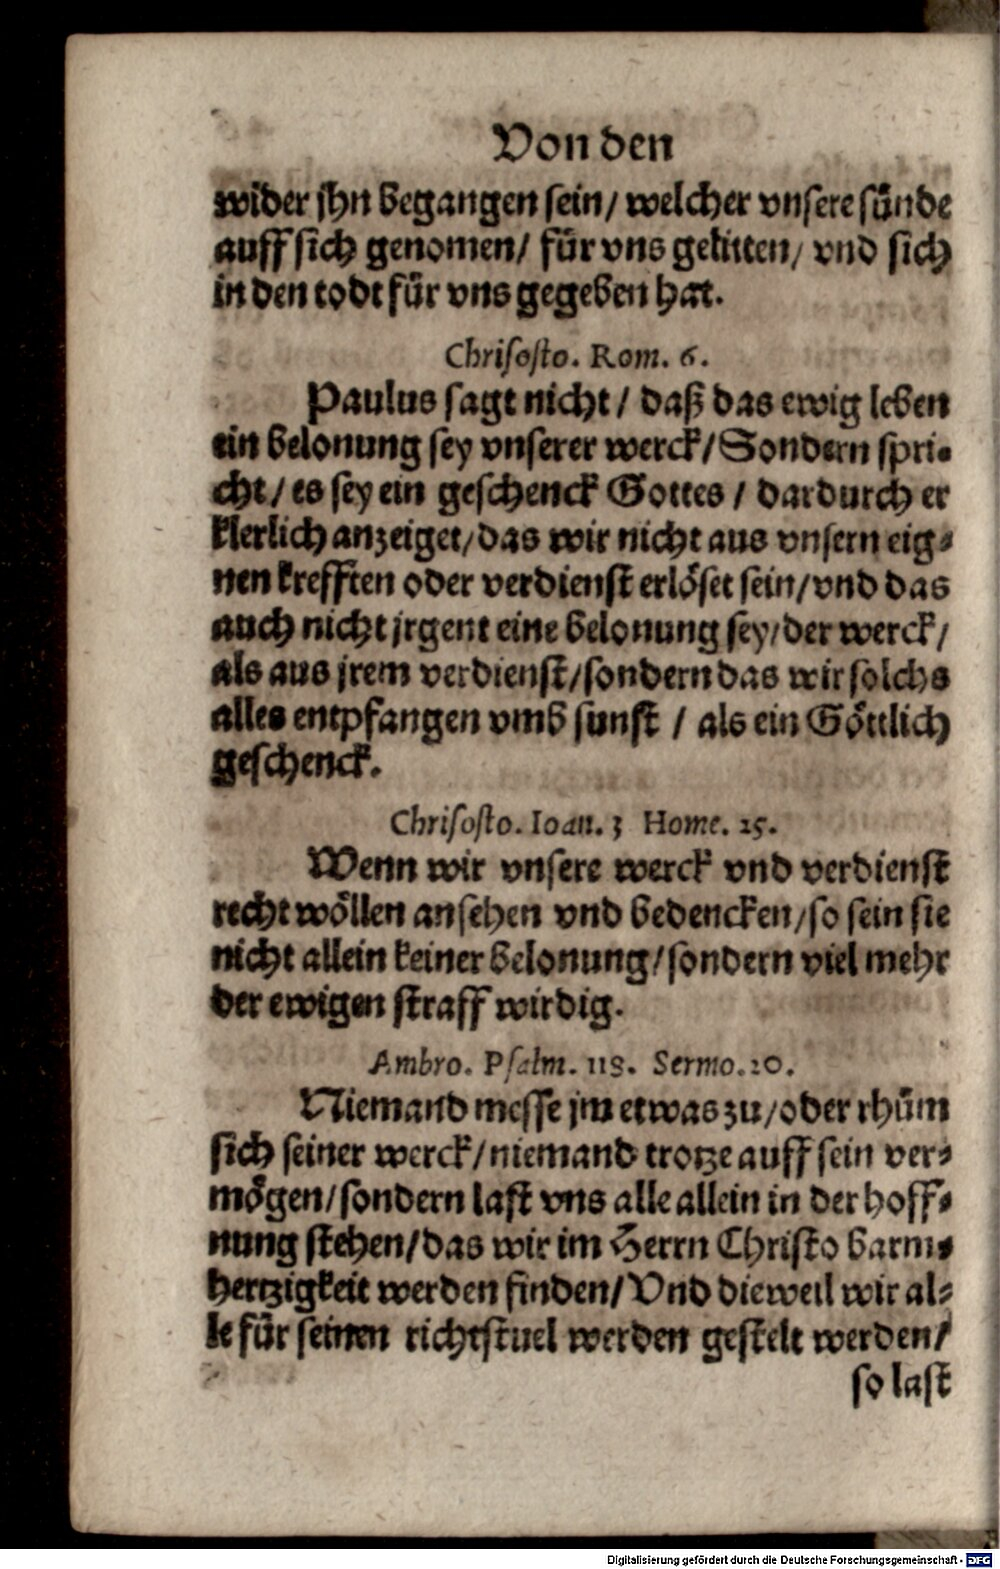 Von den
wider jhn begangen sein/ welcher vnsere sünde
auff sich genomen/ für vns gelitten/ vnd sich
in den todt für vns gegeben hat.
Chrisosto. Rom. 6.
Paulus sagt nicht / daß das ewig leben
ein belonung sey vnserer werck/ Sondern spri-
cht/ es sey ein geschenck Gottes / dardurch er
klerlich anzeiget/ das wir nicht aus vnsern eig-
nen krefften oder verdienst erlöset sein/ vnd das
auch nicht jrgent eine belonung sey/ der werck/
als aus jrem verdienst/ sondern das wir solchs
alles entpfangen vmb sunst / als ein Göttlich
geschenck.
Chrisosto. Ioan. 3 Home. 25.
Wenn wir vnsere werck vnd verdienst
recht wöllen ansehen vnd bedencken/ so sein sie
nicht allein keiner belonung/ sondern viel mehr
der ewigen straff wirdig.
Ambro. Psalm. 118. Sermo. 20.
Niemand messe jm etwas zu/ oder rhüm
sich seiner werck/ niemand trotze auff sein ver-
mögen/ sondern last vns alle allein in der hoff-
nung stehen/ das wir im Herrn Christo barm-
hertzigkeit werden finden/ Vnd dieweil wir al-
le für seinen richtstuel werden gestelt werden/
so last
Digitalisierung gefördert durch die Deutsche Forschungsgemeinschaft - DFG